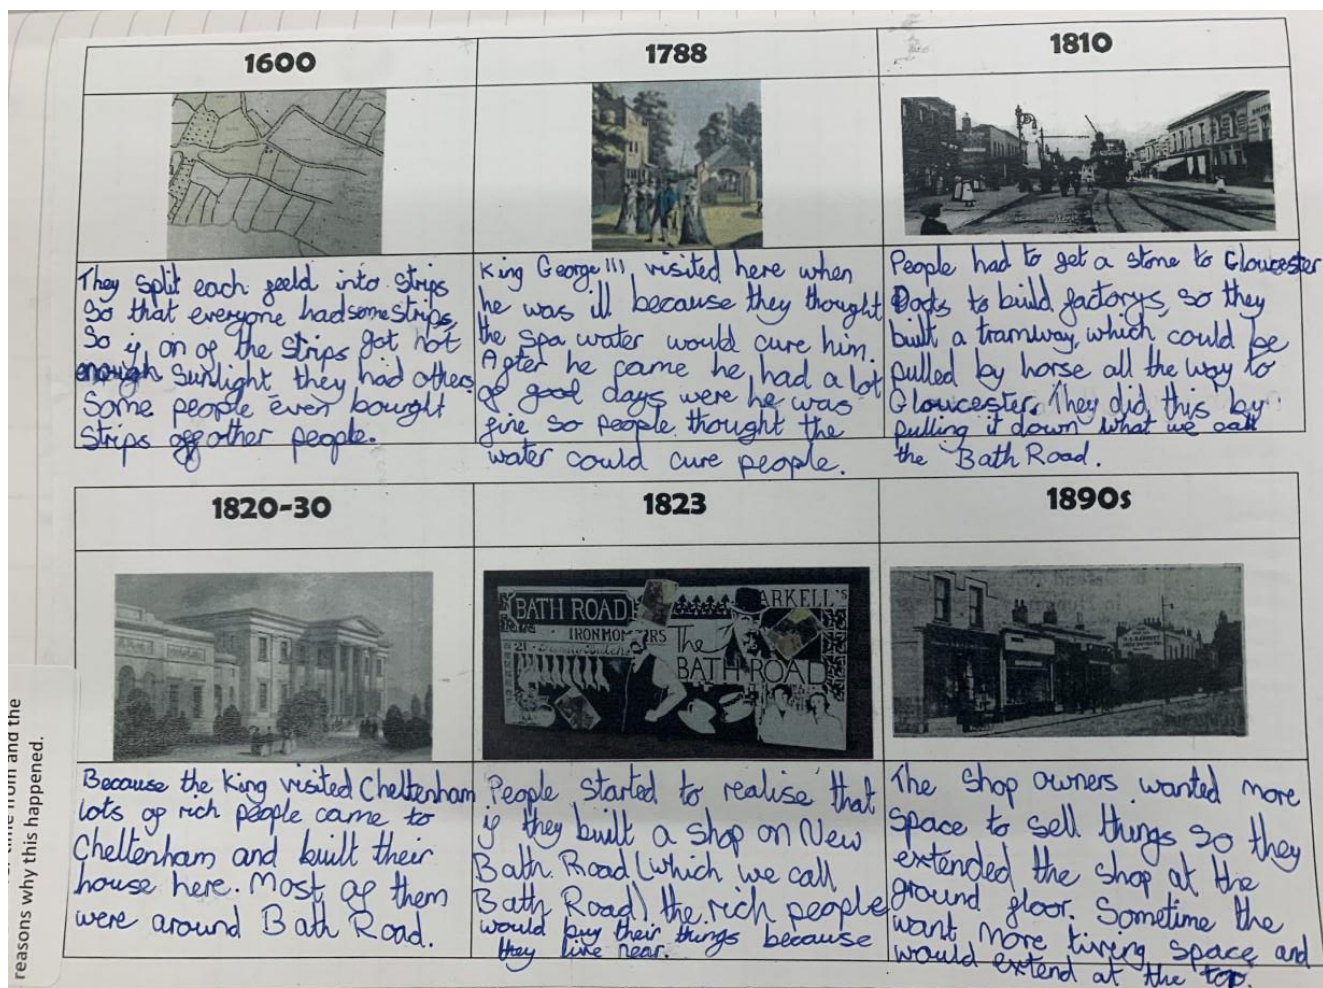 1600
They split each feeld into strips
So that everyone had some strips,
So if on of the strips got not
enough sunlight, they had others.
Some people even bought
strips off other people.
1788
King George III visited here when
he was ill because they thought
the spa water would cure him.
After he came he had a lot
of good days were he was
fine so people thought the
water could cure people.
1810
People had to get a stone to Gloucester
Docks to build factorys, so they
built a tramway which could be
pulled by horse all the way to
Gloucester. They did this by
pulling it down what we call
the Bath Road.
1820-30
Because the King visited Cheltenham
lots of rich people came to
Cheltenham and built their
house here. Most of them
were around Bath Road.
1823
BATH ROAD
ARKELL'S
IRONMONGERS
The
BATH ROAD
People started to realise that
if they built a shop on New
Bath Road (which we call
Bath Road) the rich people
would buy their things because
they live near.
1890s
The shop owners wanted more
space to sell things so they
extended the shop at the
ground floor. Sometime the
want more living space and
would extend at the top.
from and the
reasons why this happened.